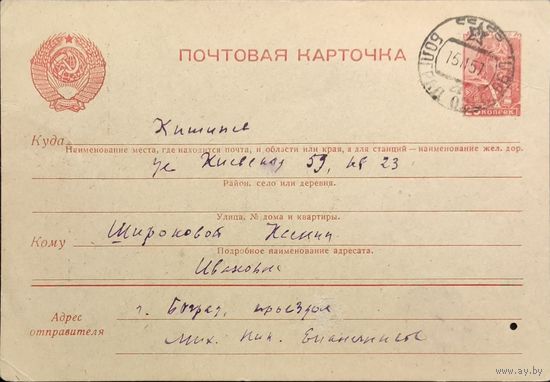 ПОЧТОВАЯ КАРТОЧКА
15 11 57
25 КОПЕЕК
Куда
Кишинев
Наименование места, где находится почта, и области или края, а для станций—наименование жел. дор.
ул Киевская 59, кв 23
Район, село или деревня.
Улица, № дома и квартиры.
Кому
Широковой Ксении
Подробное наименование адресата.
Ивановне
Адрес отправителя
г. Болград, проездом
Мих. Ник.
www.ay.by